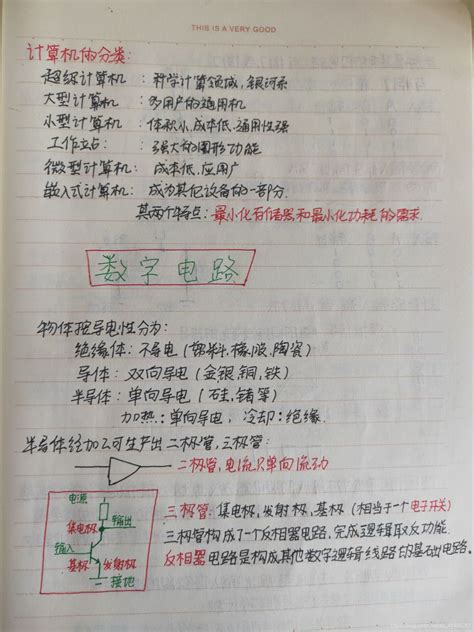 THIS IS A VERY GOOD
计算机的分类:
超级计算机 : 科学计算领域, 银河系
大型计算机 : 多用户的通用机
小型计算机 : 体积小, 成本低, 通用性强
工作站 : 强大的图形功能
微型计算机: 成本低, 应用广
嵌入式计算机: 成为其他设备的一部分.
其两个特点: 最小化存储器和最小化功耗的需求.
数字电路
物体按导电性分为:
绝缘体: 不导电 (塑料, 橡胶, 陶瓷)
导体: 双向导电 (金银, 铜, 铁)
半导体: 单向导电 (硅, 锗等)
加热: 单向导电, 冷却: 绝缘.
半导体经加工可生产出二极管, 三极管:
二极管, 电流只单向流动
电流
集电极
输出
输入
基极
发射极
接地
三极管: 集电极, 发射极, 基极 (相当于一个电子开关)
三极管构成了个反相器电路, 完成逻辑取反功能.
反相器电路是构成其他数字逻辑线路的基础电路.